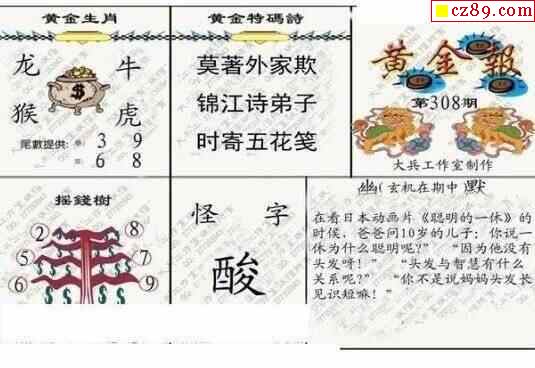 cz89.com
黄金生肖
龙 牛
猴 虎
尾數提供: 單 3 9
雙 6 8
黄金特碼詩
莫著外家欺
锦江诗弟子
时寄五花笺
黄金報
第308期
大兵工作室制作
摇錢樹
2 5 8
7 9
6
怪 字
酸
幽(玄机在期中 默
在看日本动画片《聪明的一休》的
时候，爸爸问10岁的儿子；你说一
休为什么聪明呢?” “因为他没有
头发呀！” “头发与智慧有什么
关系呢?” “你不是说妈妈头发长
见识短嘛！”